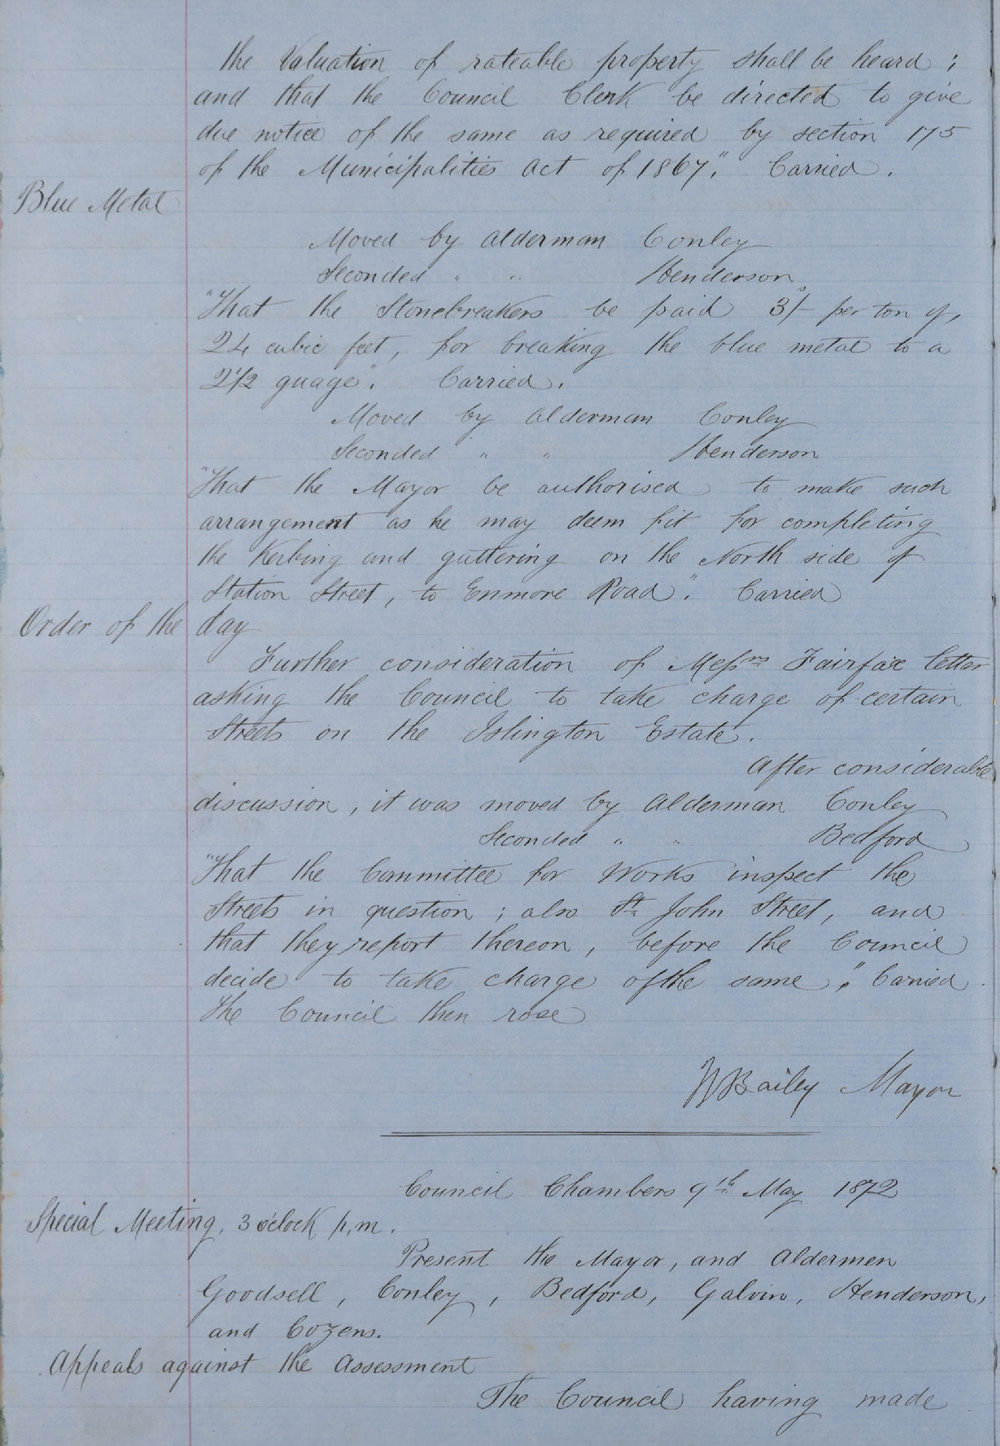 the Valuation of rateable property shall be heard ;
and that the Council Clerk be directed to give
due notice of the same as required by section 175
of the Municipalities Act of 1867". Carried.
Blue Metal
Moved by Alderman Conley
Seconded " " Henderson
"That the Stonebreakers be paid 3/- per ton of,
24 cubic feet, for breaking the blue metal to a
2 1/2 guage". Carried.
Moved by Alderman Conley
Seconded " " Henderson
"That the Mayor be authorised to make such
arrangement as he may deem fit for completing
the Kerbing and guttering on the North side of
Station Street, to Enmore Road". Carried
Order of the day
Further consideration of Messrs Fairfax letter
asking the Council to take charge of certain
Streets on the Islington Estate.
After considerable
discussion, it was moved by Alderman Conley
Seconded " " Bedford
"That the Committee for Works inspect the
Streets in question ; also St. John Street, and
that they report thereon, before the Council
decide to take charge of the same," Carried.
The Council then rose
Bailey Mayor
Council Chambers 9th May 1872
Special Meeting, 3 o'clock p.m.
Present the Mayor, and Aldermen
Goodsell, Conley, Bedford, Galvin, Henderson,
and Cozens.
Appeals against the Assessment
The Council having made